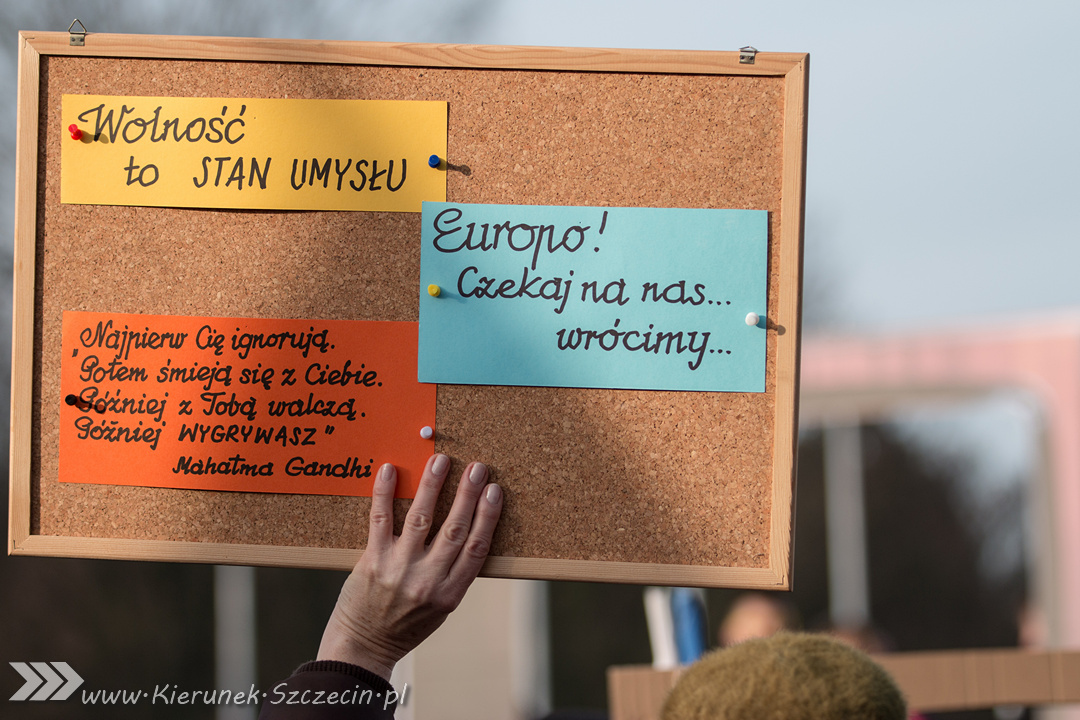 Wolność
to STAN UMYSŁU
Europo!
Czekaj na nas...
wrócimy...
Najpierw Cię ignorują.
"Potem śmieją się z Ciebie.
Później z Tobą walczą.
Później WYGRYWASZ"
Mahatma Gandhi
www.Kierunek.Szczecin.pl